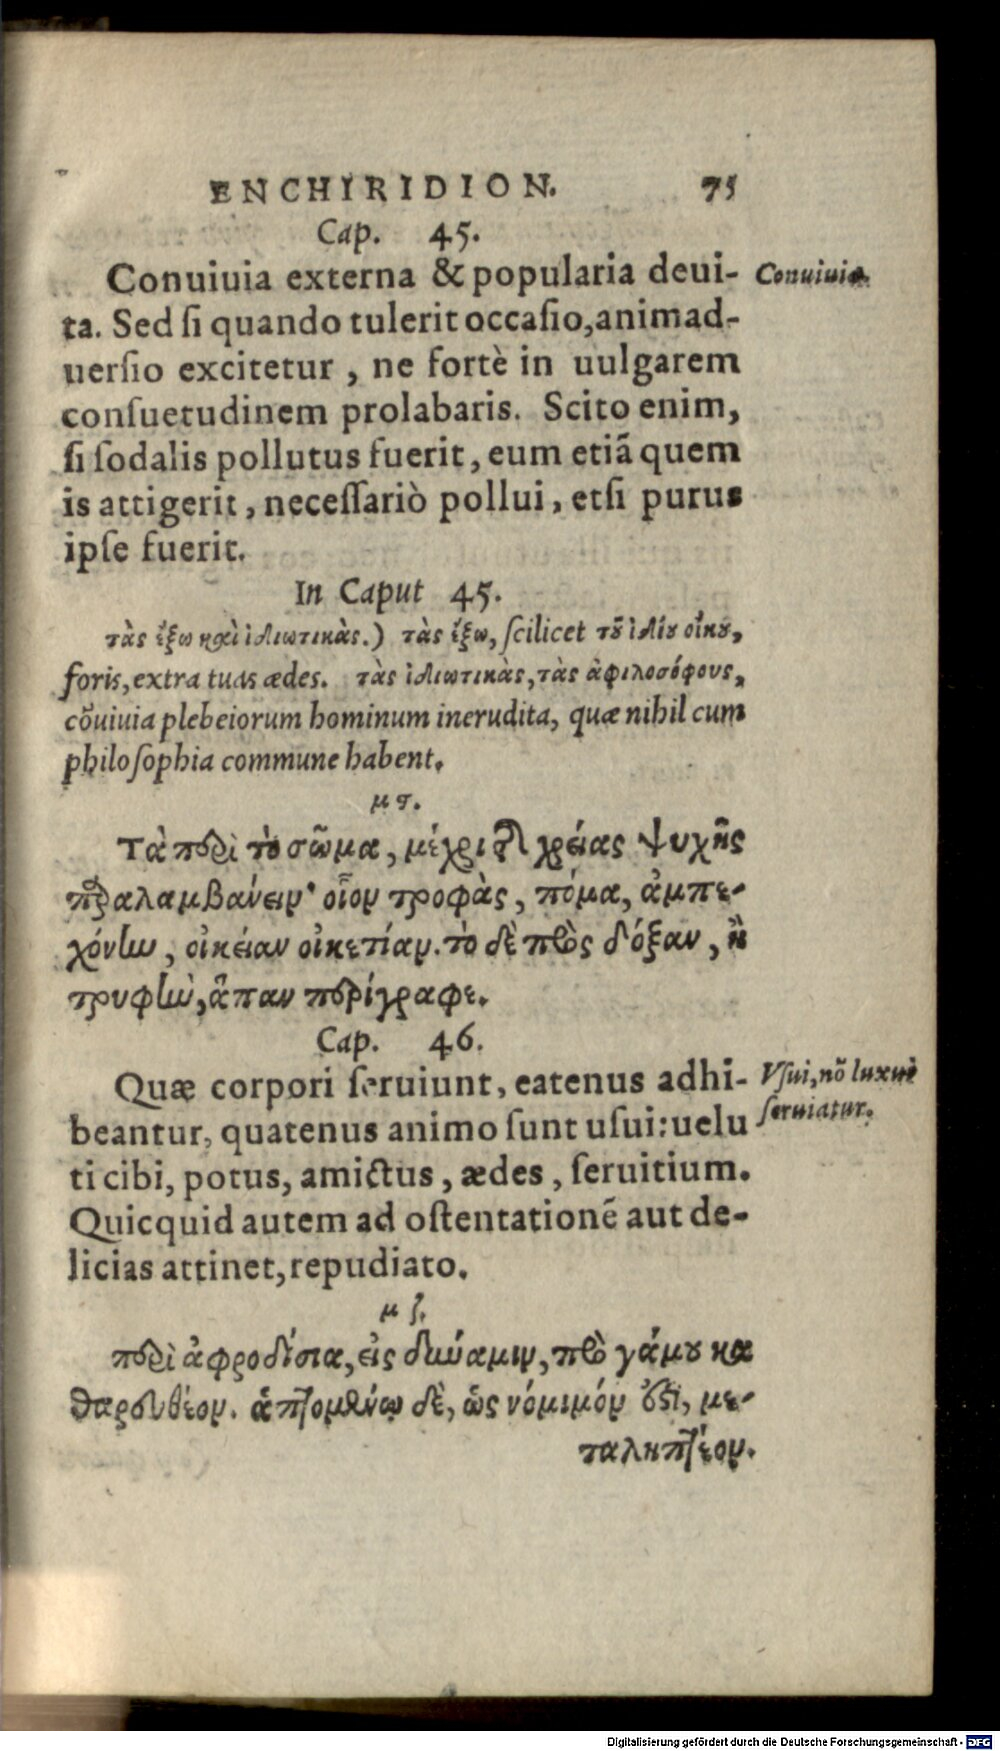 ENCHIRIDION. 75
Cap. 45.
Conuiuia externa & popularia deui- Conuiuia.
ta. Sed ſi quando tulerit occaſio, animad-
uerſio excitetur, ne fortè in uulgarem
conſuetudinem prolabaris. Scito enim,
ſi ſodalis pollutus fuerit, eum etiã quem
is attigerit, neceſſariò pollui, etſi purus
ipſe fuerit.
In Caput 45.
τὰς ἔξω καὶ ἰδιωτικὰς.) τὰς ἔξω, ſcilicet τοῦ ἰδίου οἴκου,
foris, extra tuas ædes. τὰς ἰδιωτικὰς, τὰς ἀφιλοσόφους,
cõuiuia plebeiorum hominum inerudita, quæ nihil cum
philoſophia commune habent.
μϛ.
Τὰ περὶ τὸ σῶμα, μέχρι τῆς χρείας ψυχῆς
παραλαμβάνειν· οἷον τροφὰς, πόμα, ἀμπε-
χόνην, οἰκείαν οἰκετίαν. τὸ δὲ πρὸς δόξαν, ἢ
τρυφὴν, ἅπαν περίγραφε.
Cap. 46.
Quæ corpori ſeruiunt, eatenus adhi- Vſui, nõ luxui
beantur, quatenus animo ſunt uſui: uelu ſeruiatur.
ti cibi, potus, amictus, ædes, ſeruitium.
Quicquid autem ad oſtentationẽ aut de-
licias attinet, repudiato.
μζ.
περὶ ἀφροδίσια, εἰς δύναμιν, πρὸ γάμου κα
θαρευτέον. ἁπτομένῳ δὲ, ὡς νόμιμόν ἐστι, με-
ταληπτέον.
Digitalisierung gefördert durch die Deutsche Forschungsgemeinschaft - DFG